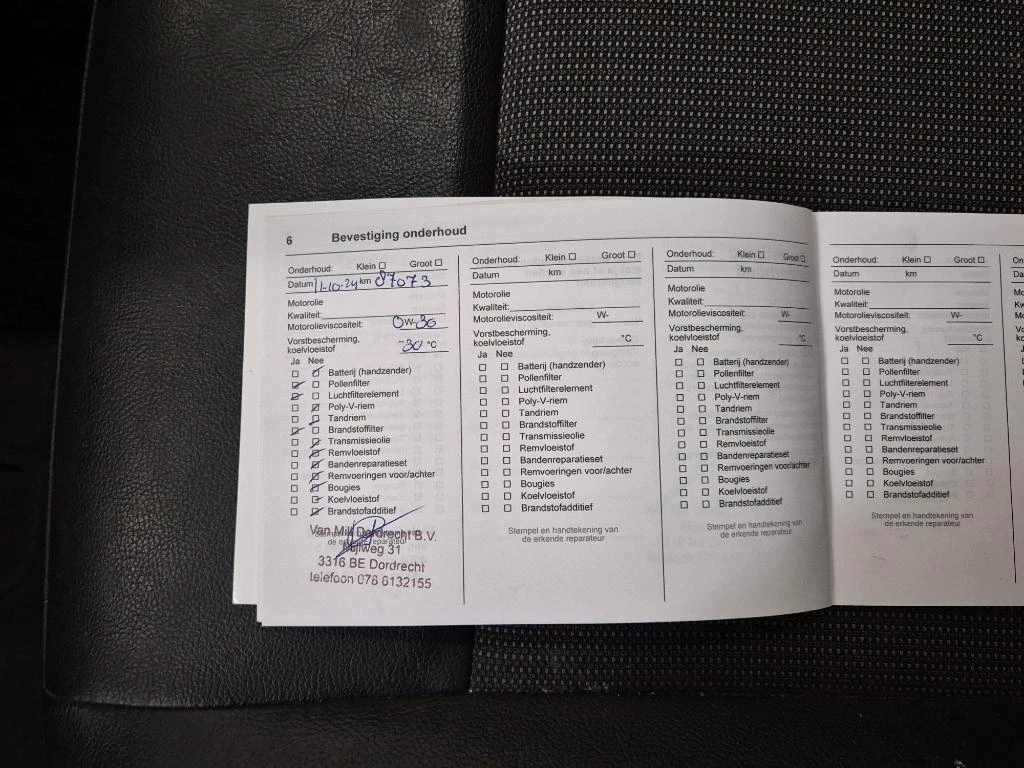 6 Bevestiging onderhoud
Onderhoud: Klein ☐ Groot ☐
Datum 11-10-24 km 87073
Motorolie
Kwaliteit:
Motorolieviscositeit: 0W-30
Vorstbescherming,
koelvloeistof -30 °C
Ja Nee
Batterij (handzender)
Pollenfilter
Luchtfilterelement
Poly-V-riem
Tandriem
Brandstoffilter
Transmissieolie
Remvloeistof
Bandenreparatieset
Remvoeringen voor/achter
Bougies
Koelvloeistof
Brandstofadditief
Van Mill Dordrecht B.V.
de erkende reparateur
weg 31
3316 BE Dordrecht
telefoon 078 6132155
Onderhoud: Klein ☐ Groot ☐
Datum km
Motorolie
Kwaliteit:
Motorolieviscositeit: W-
Vorstbescherming,
koelvloeistof °C
Ja Nee
Batterij (handzender)
Pollenfilter
Luchtfilterelement
Poly-V-riem
Tandriem
Brandstoffilter
Transmissieolie
Remvloeistof
Bandenreparatieset
Remvoeringen voor/achter
Bougies
Koelvloeistof
Brandstofadditief
Stempel en handtekening van
de erkende reparateur
Onderhoud: Klein ☐ Groot ☐
Datum km
Motorolie
Kwaliteit:
Motorolieviscositeit: W-
Vorstbescherming,
koelvloeistof °C
Ja Nee
Batterij (handzender)
Pollenfilter
Luchtfilterelement
Poly-V-riem
Tandriem
Brandstoffilter
Transmissieolie
Remvloeistof
Bandenreparatieset
Remvoeringen voor/achter
Bougies
Koelvloeistof
Brandstofadditief
Stempel en handtekening van
de erkende reparateur
Onderhoud: Klein ☐ Groot ☐
Datum km
Motorolie
Kwaliteit:
Motorolieviscositeit: W-
Vorstbescherming,
koelvloeistof °C
Ja Nee
Batterij (handzender)
Pollenfilter
Luchtfilterelement
Poly-V-riem
Tandriem
Brandstoffilter
Transmissieolie
Remvloeistof
Bandenreparatieset
Remvoeringen voor/achter
Bougies
Koelvloeistof
Brandstofadditief
Stempel en handtekening van
de erkende reparateur